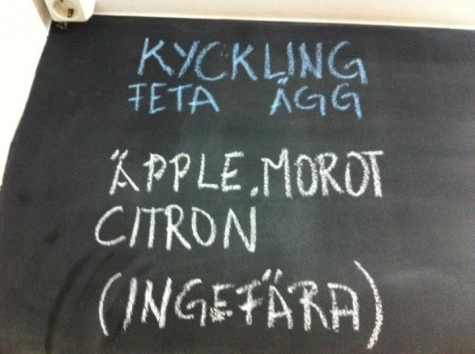 KYCKLING
FETA ÄGG
ÄPPLE, MOROT
CITRON
(INGEFÄRA)